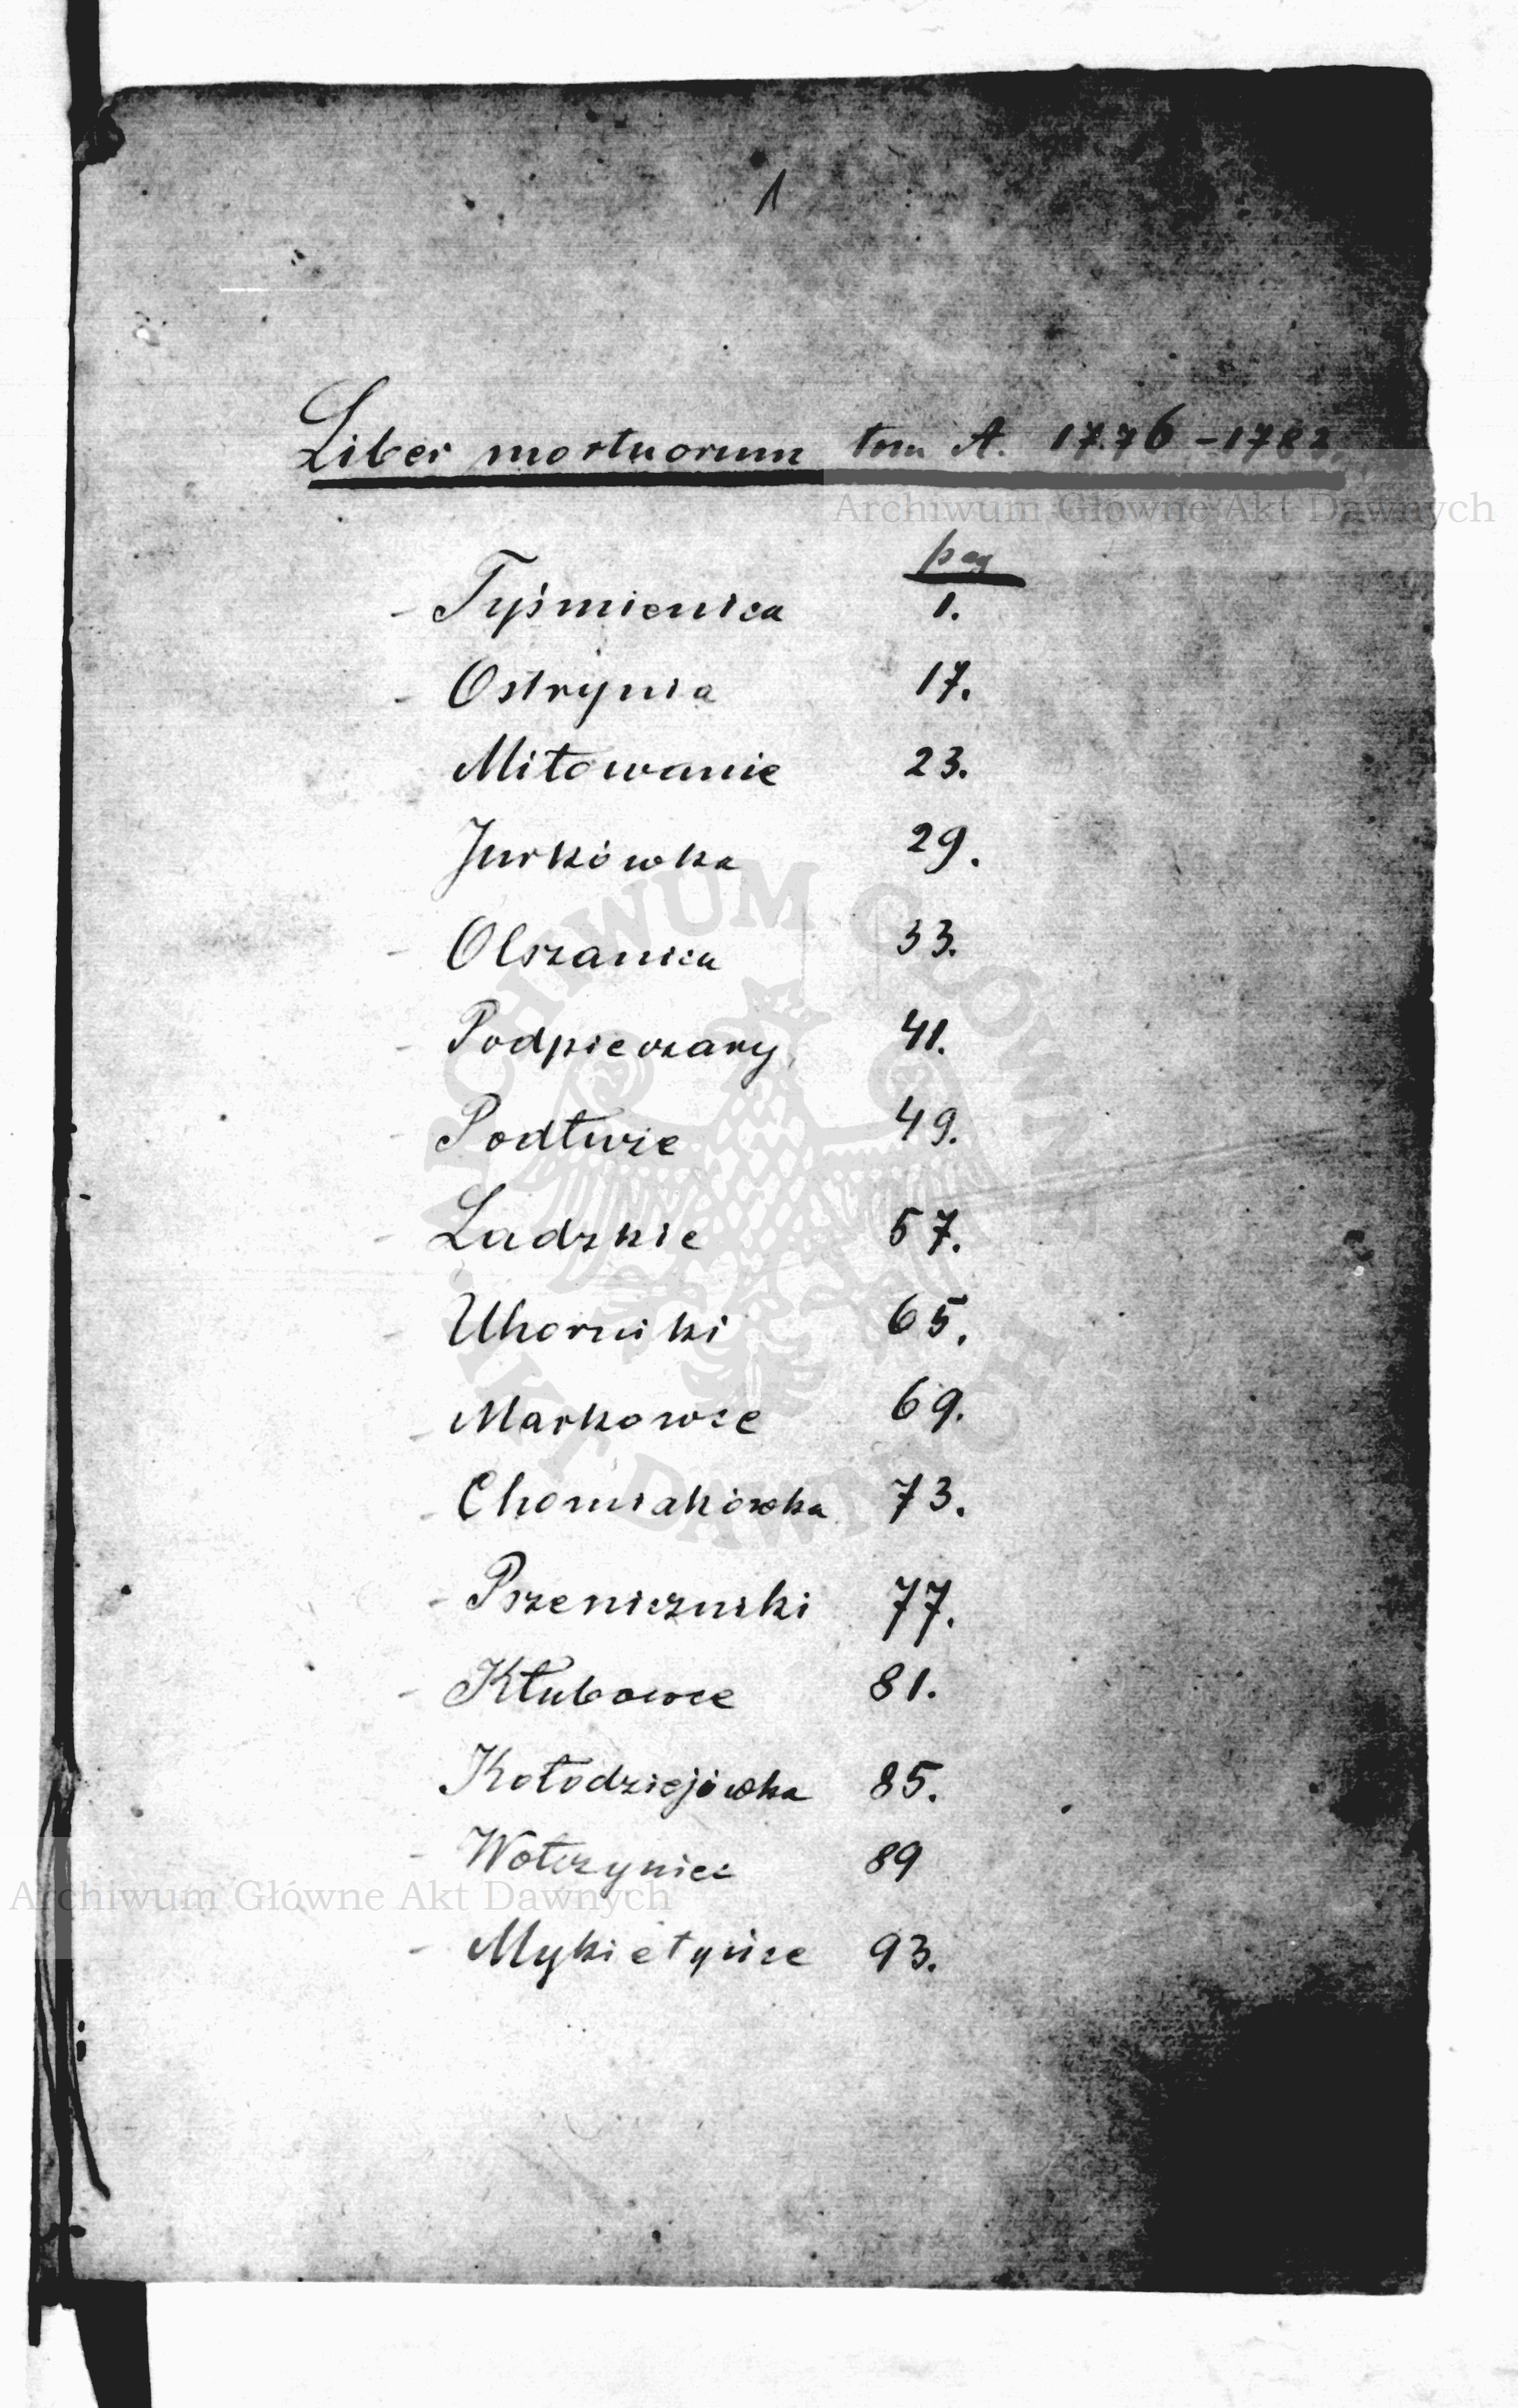 1
Liber mortuorum tom A. 1776-1782.
Archiwum Główne Akt Dawnych
pag
- Tyśmienica 1.
- Ostrynia 17.
Miłowanie 23.
Jurkówka 29.
- Olszanica 33.
- Podpieczary 41.
- Podłuże 49.
- Ladzkie 57.
- Uhorniki 65.
- Markowce 69.
- Chomiakówka 73.
- Pszeniczniki 77.
- Kłubowce 81.
Kołodziejówka 85.
- Wołczyniec 89
Archiwum Główne Akt Dawnych
- Mykietyńce 93.
ARCHIWUM GŁÓWNE · AKT DAWNYCH ·